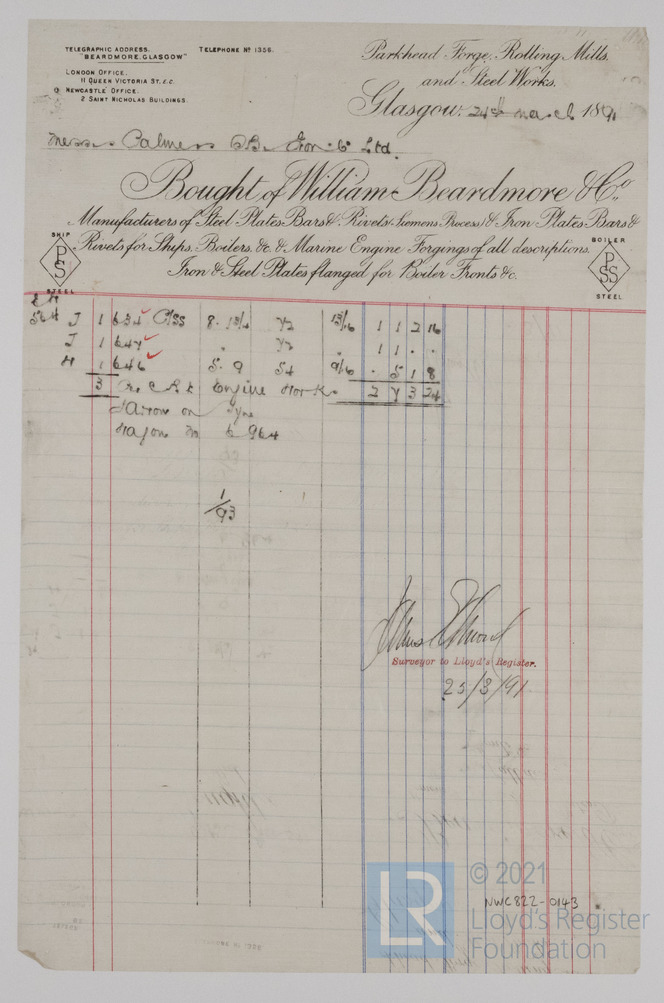 TELEGRAPHIC ADDRESS. TELEPHONE Nº 1356.
"BEARDMORE, GLASGOW"
LONDON OFFICE.
11 QUEEN VICTORIA ST, E.C.
NEWCASTLE OFFICE.
2 SAINT NICHOLAS BUILDINGS.
Parkhead Forge, Rolling Mills,
and Steel Works.
Glasgow, 24th March 1891
Messrs Palmers SB. & Iron Co Ltd.
Bought of William Beardmore & Co.,
Manufacturers of Steel Plates Bars & Rivets (Siemens Process) & Iron Plates Bars &
Rivets for Ships, Boilers, &c. & Marine Engine Forgings of all descriptions.
Iron & Steel Plates flanged for Boiler Fronts &c.
SHIP
PSS
STEEL
BOILER
PSS
STEEL
564 J 1 634 13/16 1 1 2 16
J 1 647 . . 1 1 . .
H 1 646 5. 9 54 9/16 . 5 1 8
3 Engine Works 2 7 3 24
Jarrow on Tyne
Wagon No 6964
1/93
Surveyor to Lloyd's Register.
25/3/91
LR
© 2021
NWC822-0143
Lloyd's Register
Foundation